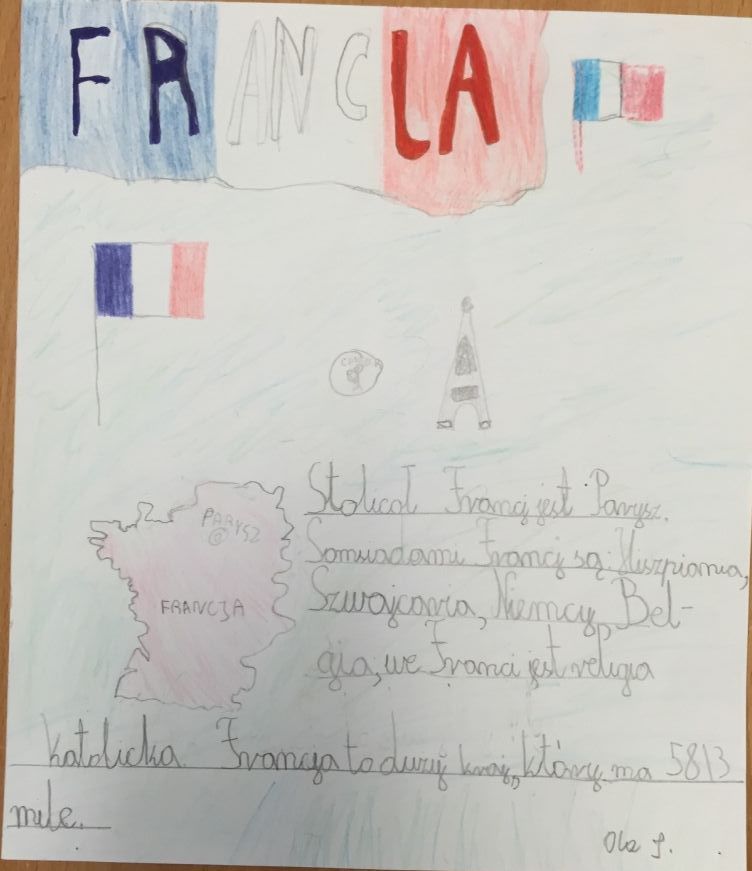 FRANCJA
PARYSZ
FRANCJA
Stolicol Francj jest Parysz.
Somsiadami Francj są: Hiszpiania,
Szwajcaria, Niemcy, Bel-
gia, we Franci jest religia
katolicka. Francja to duzy kraj, który ma 5813
mile.
Ola J.